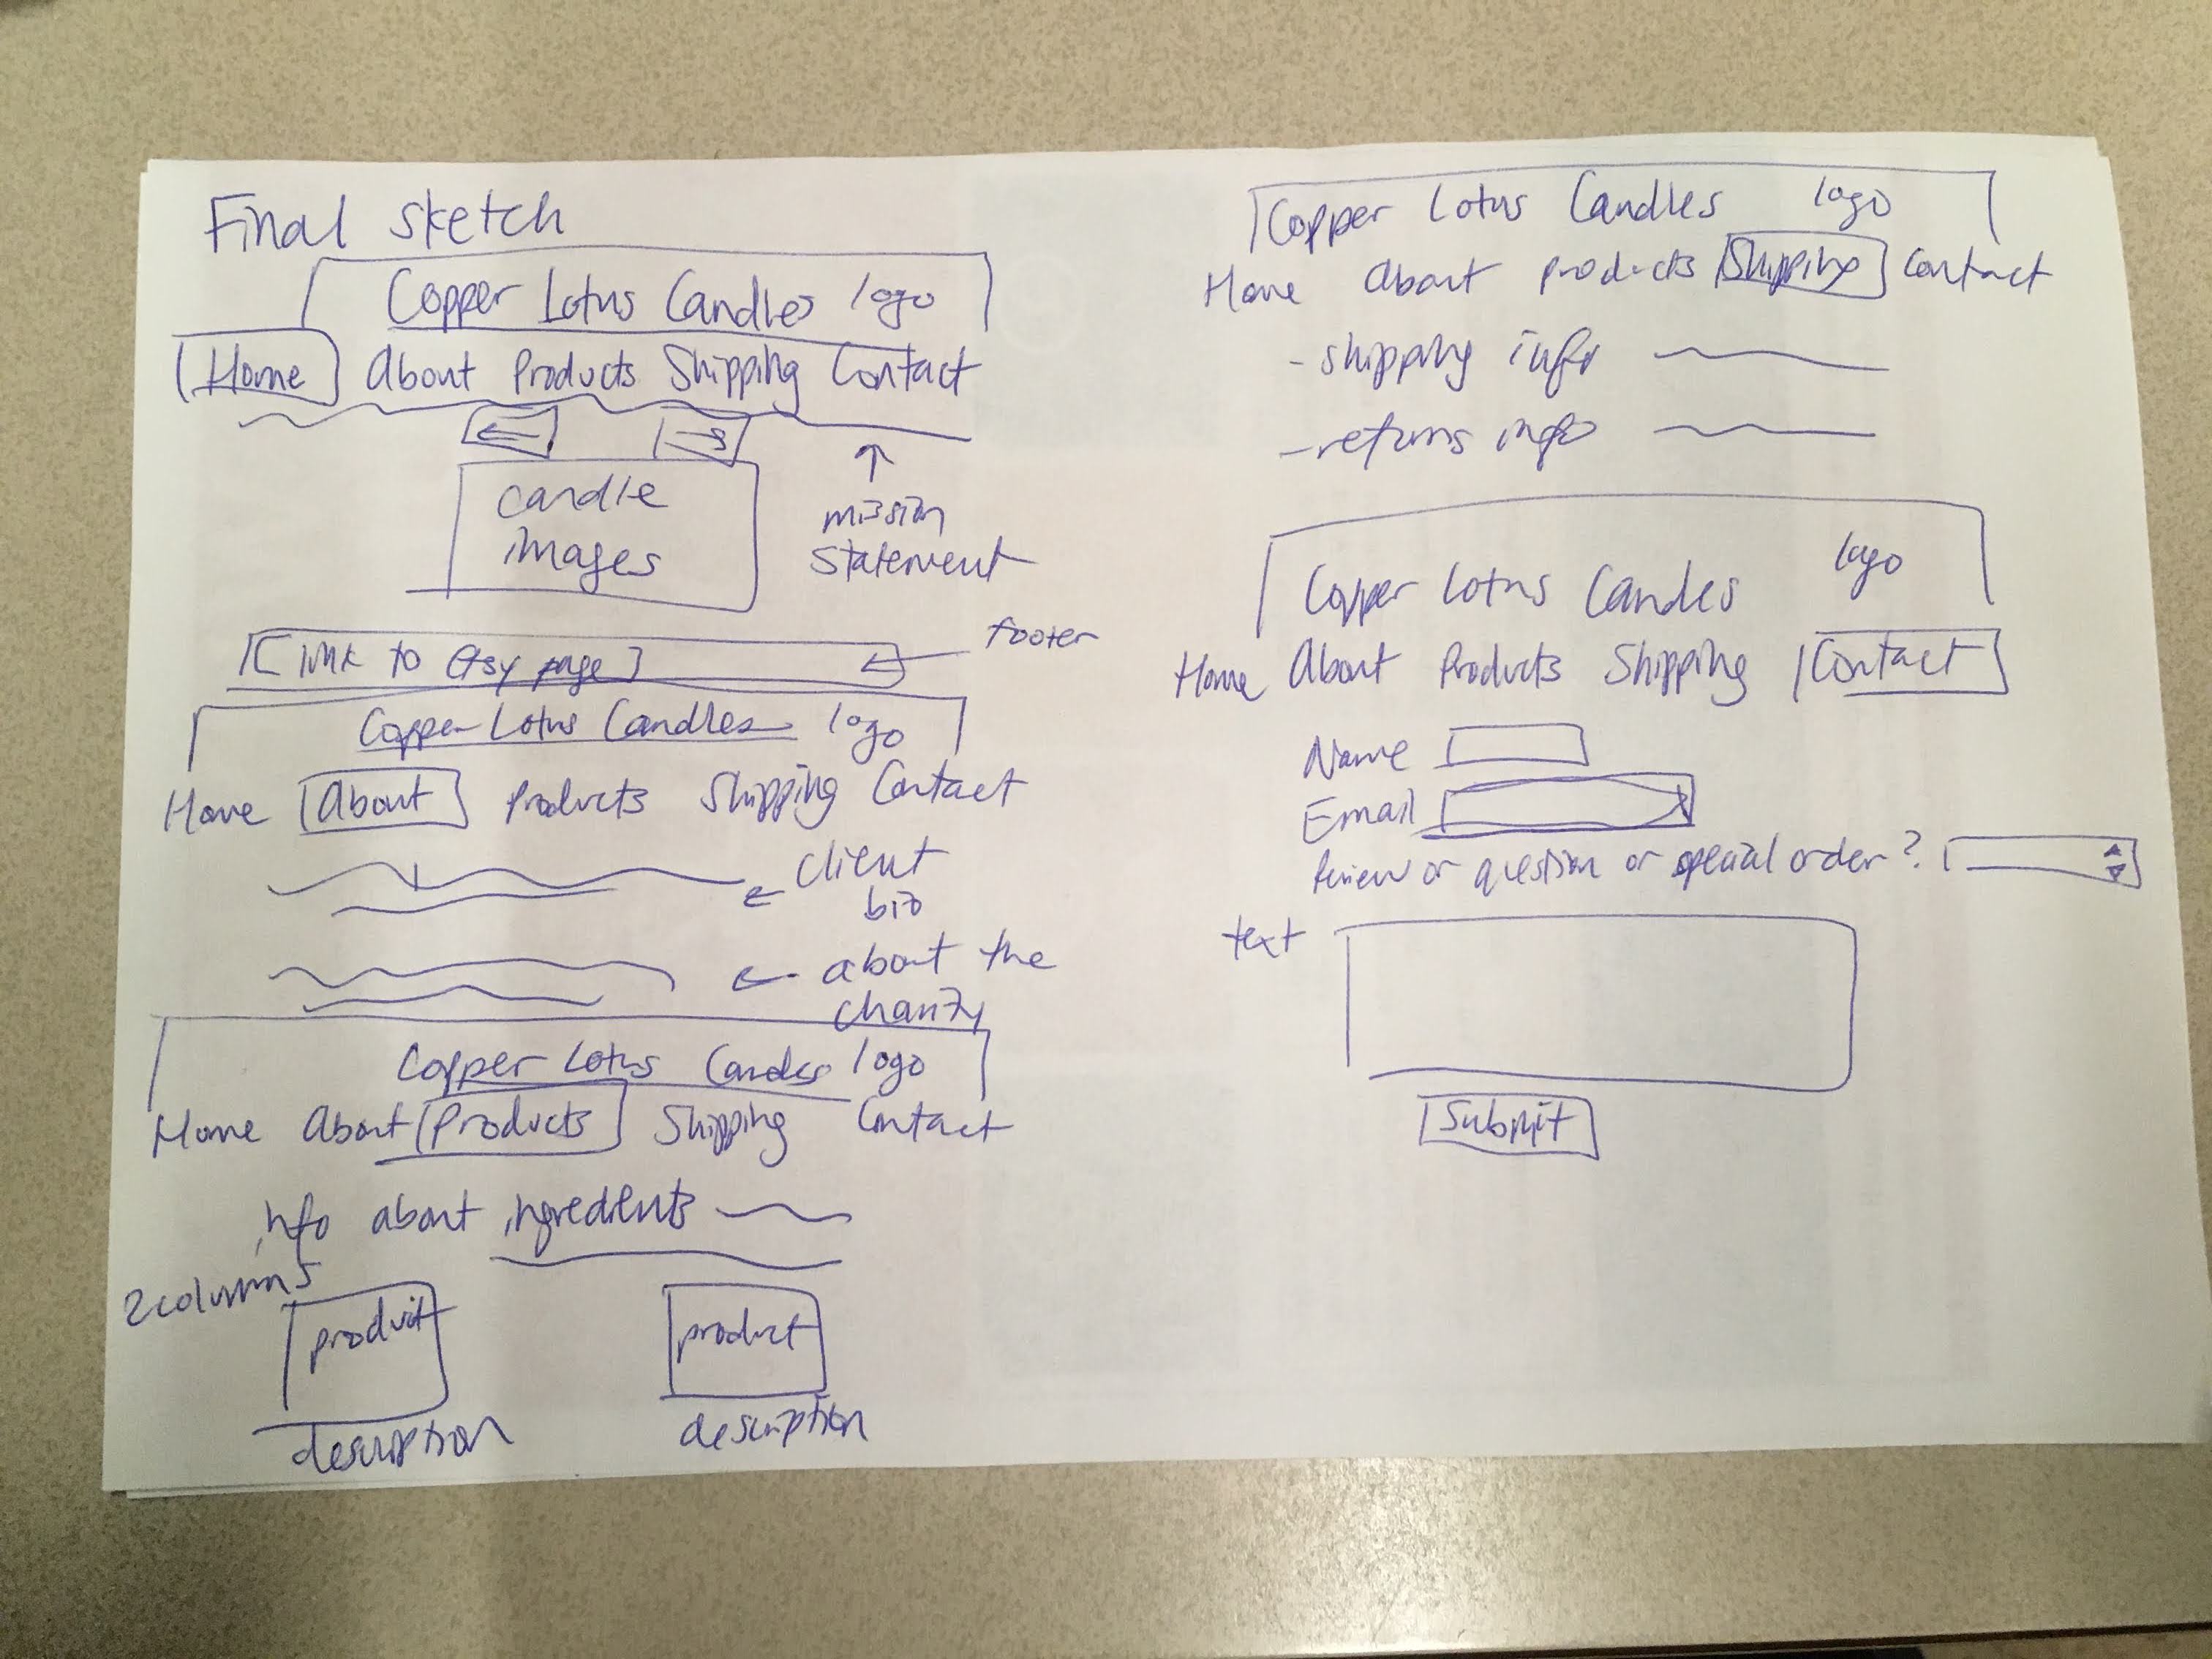 Final Sketch
Copper Lotus Candles logo
Home About Products Shipping Contact
candle
images
mission
statement
footer
[link to Etsy page]
Copper Lotus Candles logo
Home About Products Shipping Contact
client
bio
about the
charity
Copper Lotus Candles logo
Home About Products Shipping Contact
info about ingredients
2 columns
product product
description description
Copper Lotus Candles logo
Home About Products Shipping Contact
- shipping info
- returns info
logo
Copper Lotus Candles
Home About Products Shipping Contact
Name
Email
Review or question or special order?
text
Submit